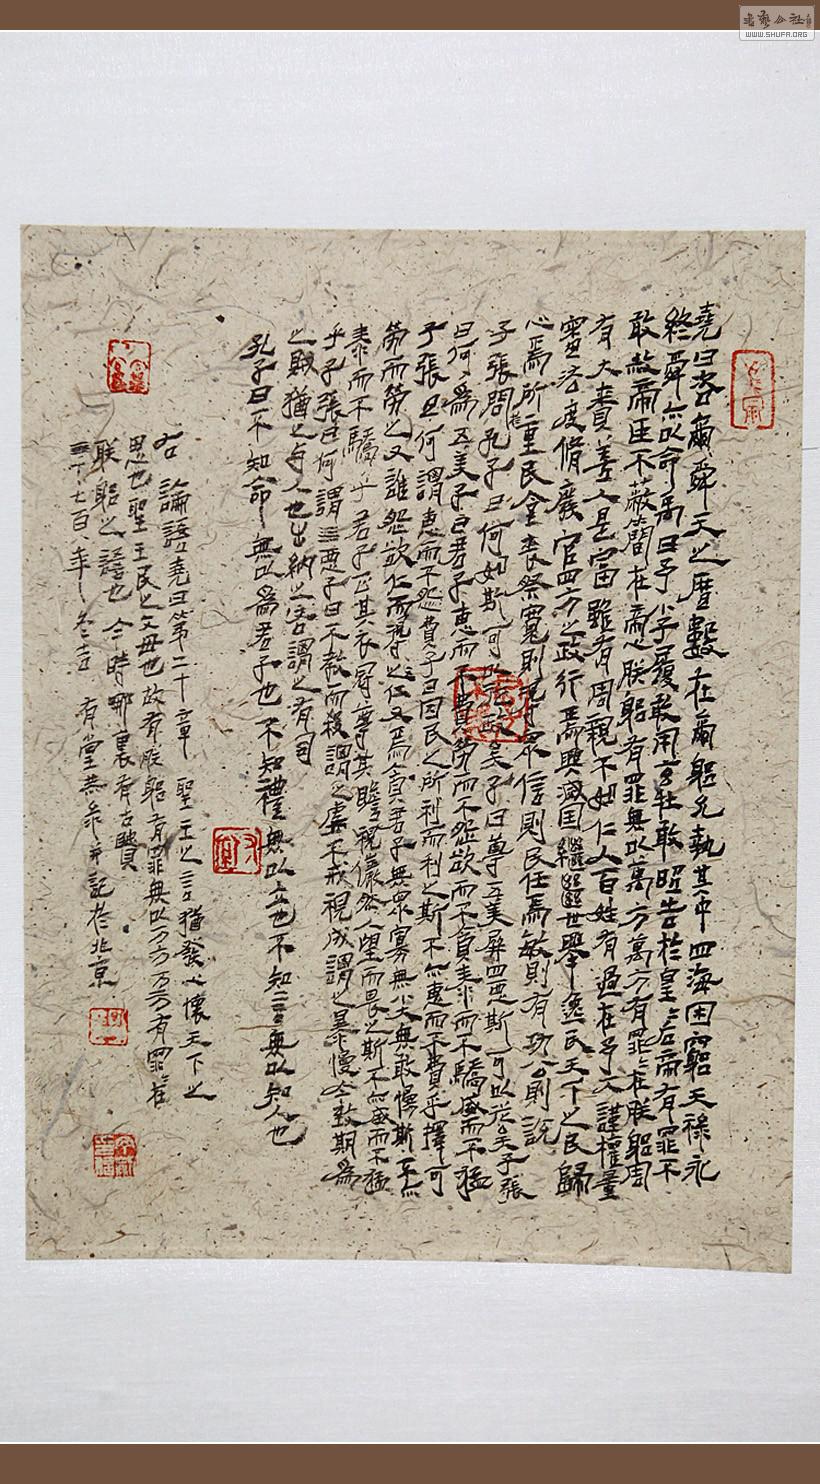 堯曰咨爾舜天之曆數在爾躬允執其中四海困窮天祿永
終舜亦以命禹曰予小子履敢用玄牡敢昭告於皇皇后帝有罪不
敢赦帝臣不蔽簡在帝心朕躬有罪無以萬方萬方有罪罪在朕躬周
有大賚善人是富雖有周親不如仁人百姓有過在予 謹權量
審法度脩廢官四方之政行焉興滅国繼絕世舉逸民天下之民歸
心焉所重民食喪祭寬則得眾信則民任焉敏則有功公則說
子張問孔子曰何如斯可以從政矣子曰尊五美屏四惡斯可以從 子張
曰何為五美子曰君子惠而不費勞而不怨欲而不貪泰而不驕威而不猛
子張曰何謂惠而不費子曰因民之所利而利之斯不亦惠而不費乎擇可
勞而勞之又誰怨欲仁而得仁又焉貪君子無眾寡無小大無敢慢斯不亦
泰而不驕乎君子正其衣冠尊其瞻視儼然人望而畏之斯不亦威而不猛
乎子張曰何謂亖惡子曰不教而殺謂之虐不戒視成謂之暴慢令致期為
之賊猶之與人也出納之吝謂之有司
孔子曰不知命無以為君子也不知禮無以立也不知言無以知人也
右論語堯曰第二十章 聖王之言猶發心懷天下之
思也聖王民之父母也故有朕躬有罪無以万方万方有罪罪在
朕躬之語也今時哪裏有古賢
年冬吉 有堂恭 并記於北京
WWW.SHUFA.ORG